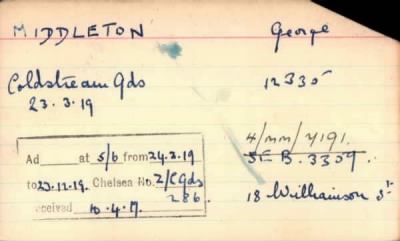 MIDDLETON George
Coldstream Gds 12335
23.3.19
4/MM/4191.
5E B. 3309.
Ad at 5/6 from 24.3.19
to 23.12.19. Chelsea No. 2/CGds
286.
received 10.4.19.
18 Williamson St